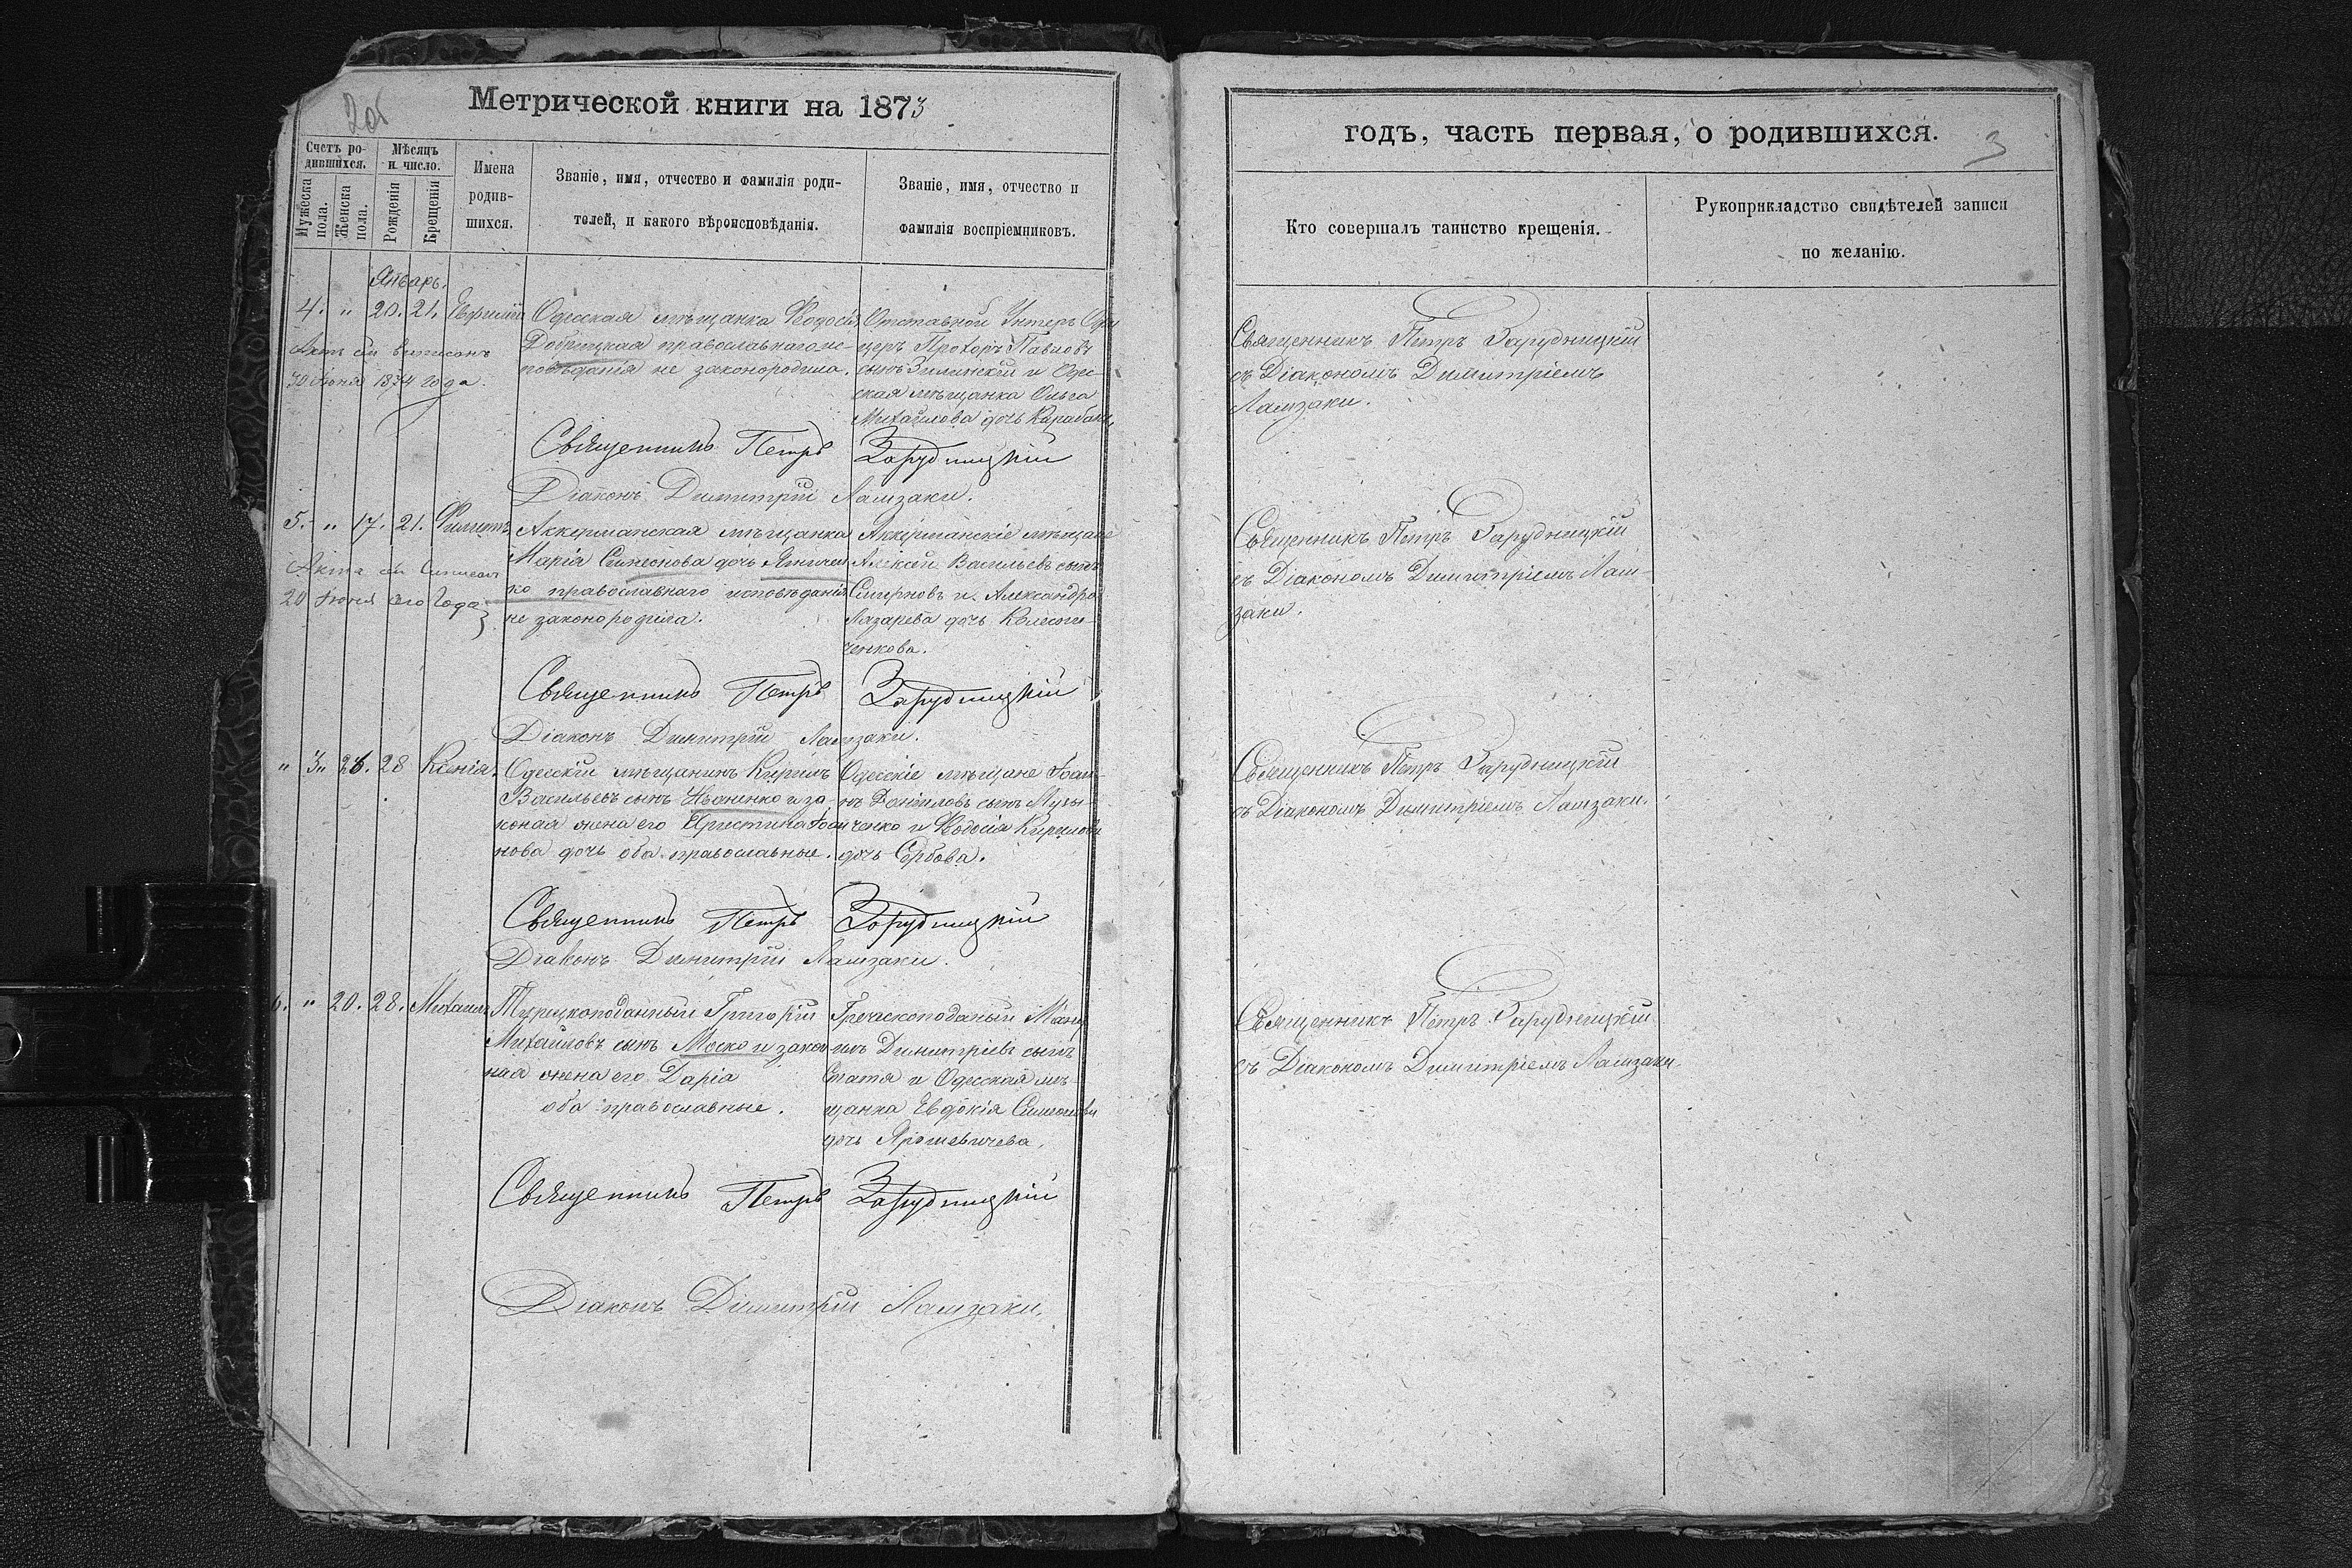 2об
Метрической книги на 1873
Счетъ ро-
дившихся.
Мѣсяцъ
и число.
Мужеска
пола.
Женска
пола.
Рожденія
Крещенія
Имена
родив-
шихся.
Званіе, имя, отчество и фамилія роди-
телей, и какого вѣроисповѣданія.
Званіе, имя, отчество и
фамилія воспріемниковъ.
Январь.
4. " 20. 21. Евфимій
Актъ выписанъ
30 Іюня 1874 года.
Одесская мѣщанка Ѳеодосія
Добрицкая православнаго ис-
повѣданія не законородила.
Отставной Унтеръ Офи
церъ Прохоръ Павловъ
сынъ Зилинскій и Одес
ская мѣщанка Ольга
Михайлова дочь Карабан
Священникъ Петръ Зарудницкій
Діаконъ Димитрій Ламзаки.
5. " 17. 21. Филиппъ
20 Іюня сего Года
Аккерманская мѣщанка
Марія Симеонова дочь
ко православнаго исповѣданія
не законородила.
Аккерманскіе мѣщане
Алексѣй Васильевъ сынъ
Смирновъ и Александра
Лазарева дочь
ченкова.
Священникъ Петръ Зарудницкій
Діаконъ Димитрій Ламзаки.
" 3" 26. 28 Ксенія.
Одесскій мѣщанинъ Кирилъ
Васильевъ сынъ Иваненко и за-
коная жена его Христина Іоан
нова дочь оба православные.
Одесскіе мѣщане Іоан-
нъ Даніиловъ сынъ Музы-
ченко и Ѳеодосія Кирилова
дочь Сербова.
Священникъ Петръ Зарудницкій
Діаконъ Димитрій Ламзаки.
6. " 20. 28. Михаилъ
Турецкоподанный Григорій
Михайловъ сынъ Моско и закон
ная жена его Дарія
оба православные.
Греческоподаный Ману
илъ Димитріевъ сынъ
Статя и Одесская мѣ-
щанка Евдокія Симеонова
дочь Ярошевичева.
Священникъ Петръ Зарудницкій
Діаконъ Димитрій Ламзаки.
годъ, часть первая, о родившихся.
3
Кто совершалъ таинство крещенія.
Рукоприкладство свидѣтелей записи
по желанію.
Священникъ Петръ Зарудницкій
съ Діакономъ Димитріемъ
Ламзаки.
Священникъ Петръ Зарудницкій
съ Діакономъ Димитріемъ Лам-
заки.
Священникъ Петръ Зарудницкій
съ Діакономъ Димитріемъ Ламзаки.
Священникъ Петръ Зарудницкій
съ Діакономъ Димитріемъ Ламзаки